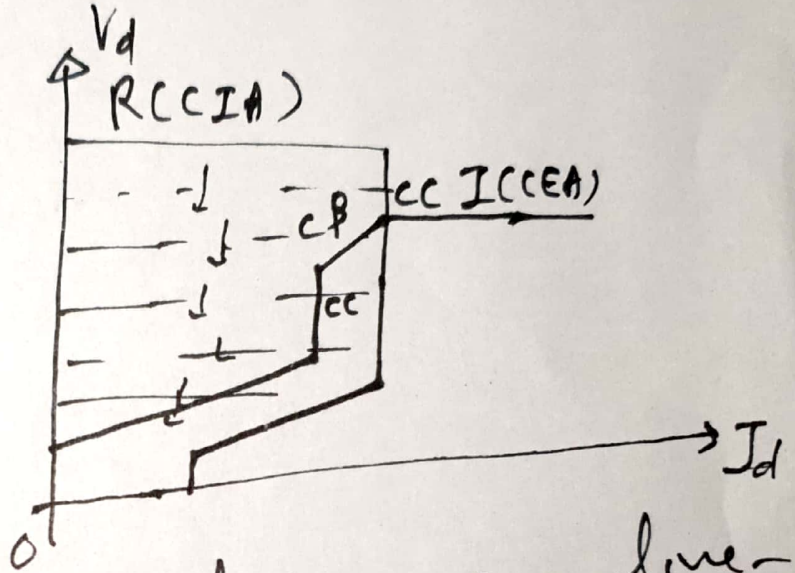 Vd
R(CIA)
CC I(CEA)
Cβ
CC
Id
O
line-